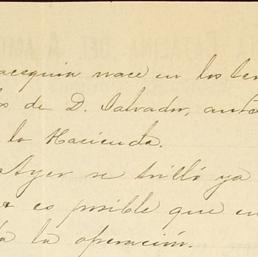 acequia nace en los
de D. Salvador, ante
la Hacienda.
Ayer se trilló ya
es posible que en
la operación.